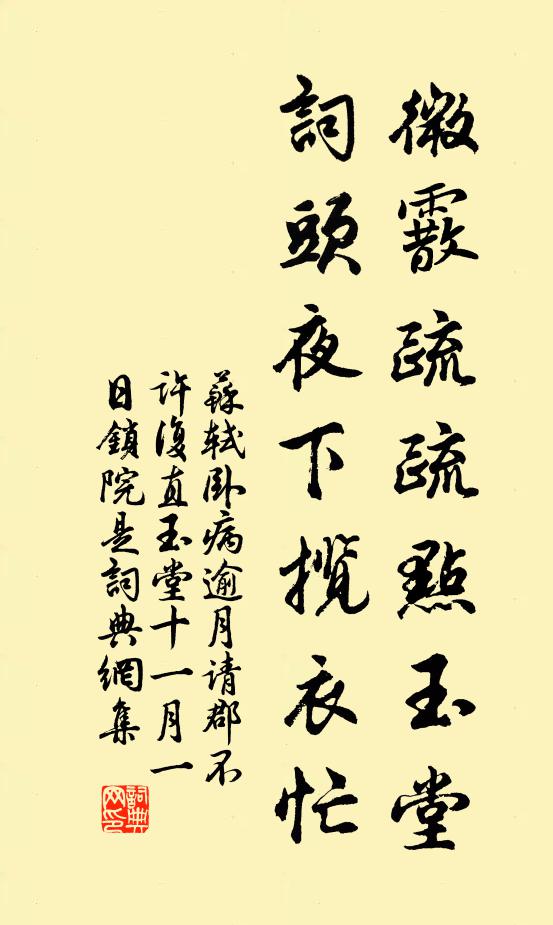 微霰疏疏點玉堂
詞頭夜下攬衣忙
蘇軾卧病逾月请郡不
许復直玉堂十一月一
日鎖院是詞典網集
詞典
网印